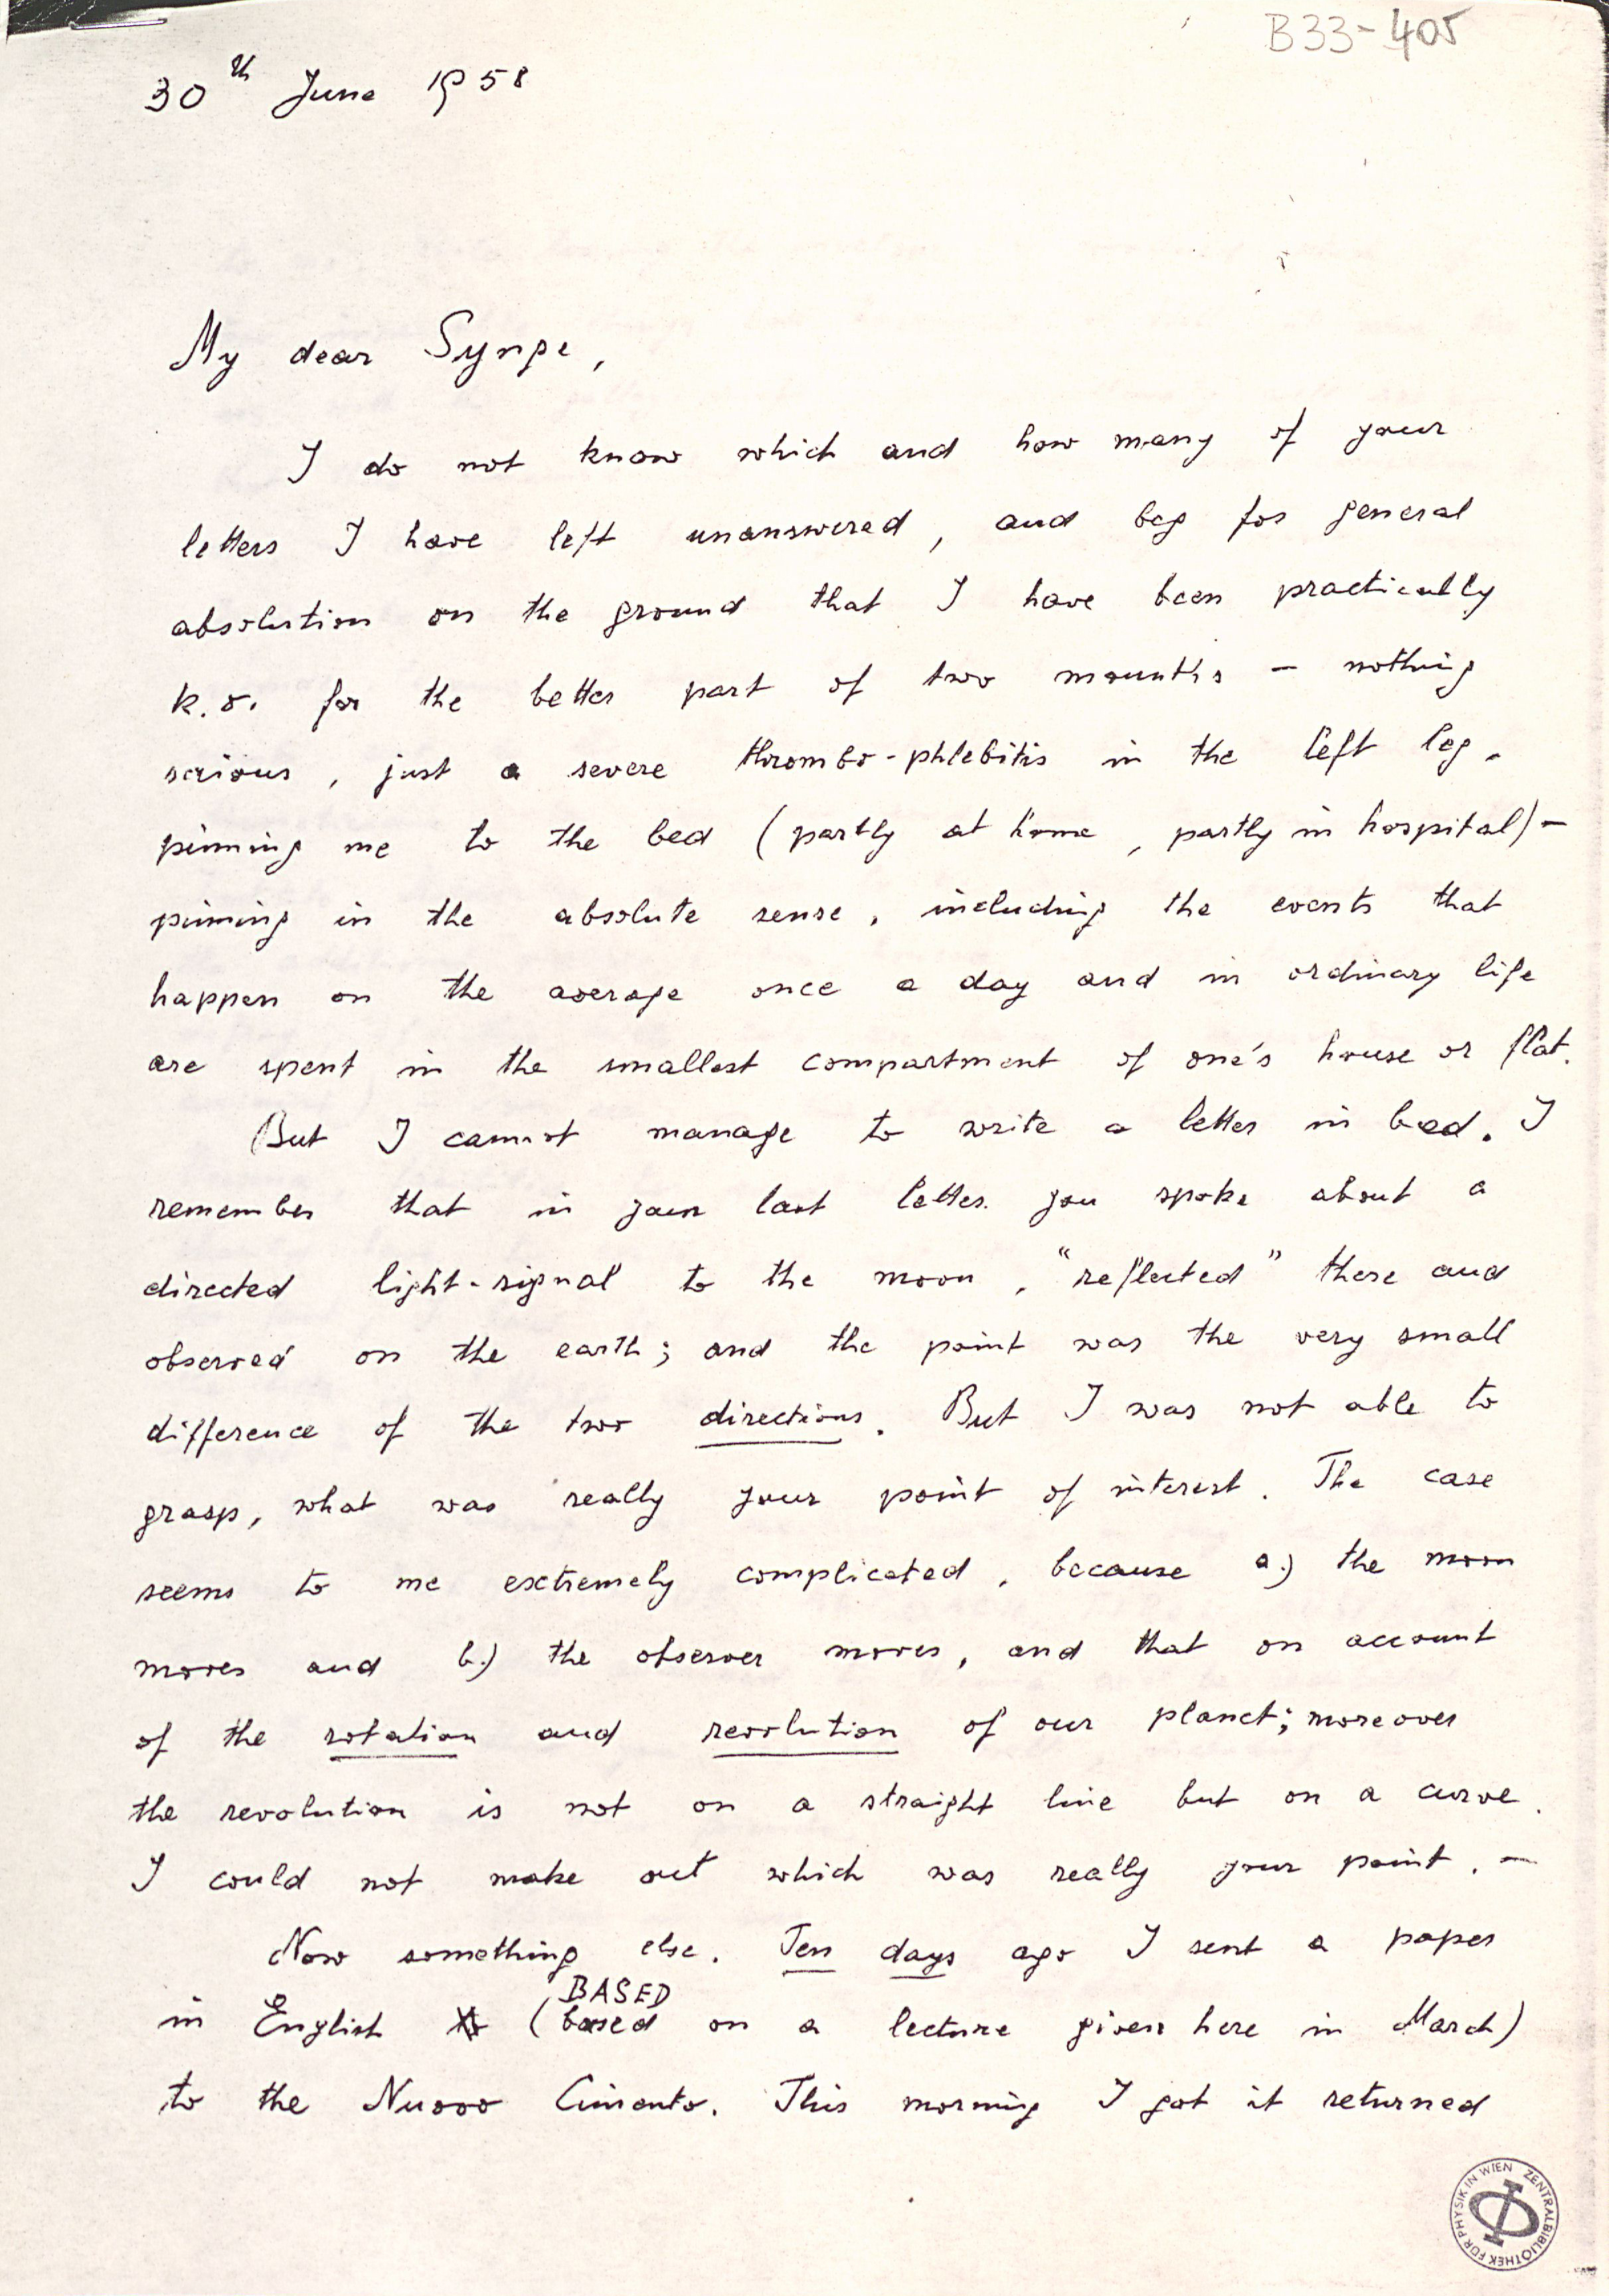 B33-405
30th June 1958
My dear Synge,
I do not know which and how many of your
letters I have left unanswered, and beg for general
absolution on the ground that I have been practically
k.o. for the better part of two mounths – nothing
serious, just a severe thrombo-phlebitis in the left leg,
pinning me to the bed (partly at home, partly in hospital) –
pinning in the absolute sense, including the events that
happen on the average once a day and in ordinary life
are spent in the smallest compartment of one's house or flat.
But I cannot manage to write a letter in bed. I
remember that in your last letter you spoke about a
directed light-signal to the moon, "reflected" there and
observed on the earth; and the point was the very small
difference of the two directions. But I was not able to
grasp, what was really your point of interest. The case
seems to me extremely complicated, because a.) the moon
moves and b.) the observer moves, and that on account
of the rotation and revolution of our planet; moreover
the revolution is not on a straight line but on a curve.
I could not make out which was really your point. –
Now something else. Ten days ago I sent a paper
BASED
in English (based on a lecture given here in March)
to the Nuovo Cimento. This morning I got it returned
ZENTRALBIBLIOTHEK FÜR PHYSIK IN WIEN